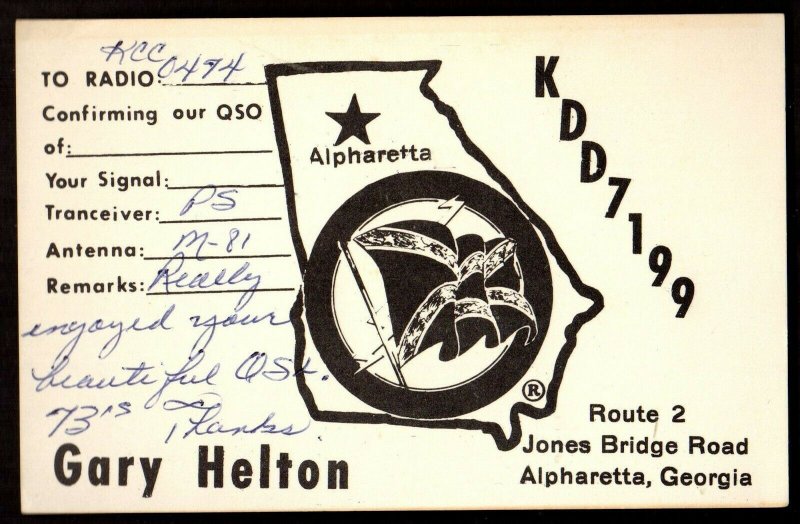 KCC
TO RADIO: 0474
Confirming our QSO
of:
Your Signal:
Tranceiver: PS
Antenna: M-81
Remarks: Really
enjoyed your
beautiful QSL.
73's Thanks.
Gary Helton
Alpharetta
®
KDD7199
Route 2
Jones Bridge Road
Alpharetta, Georgia